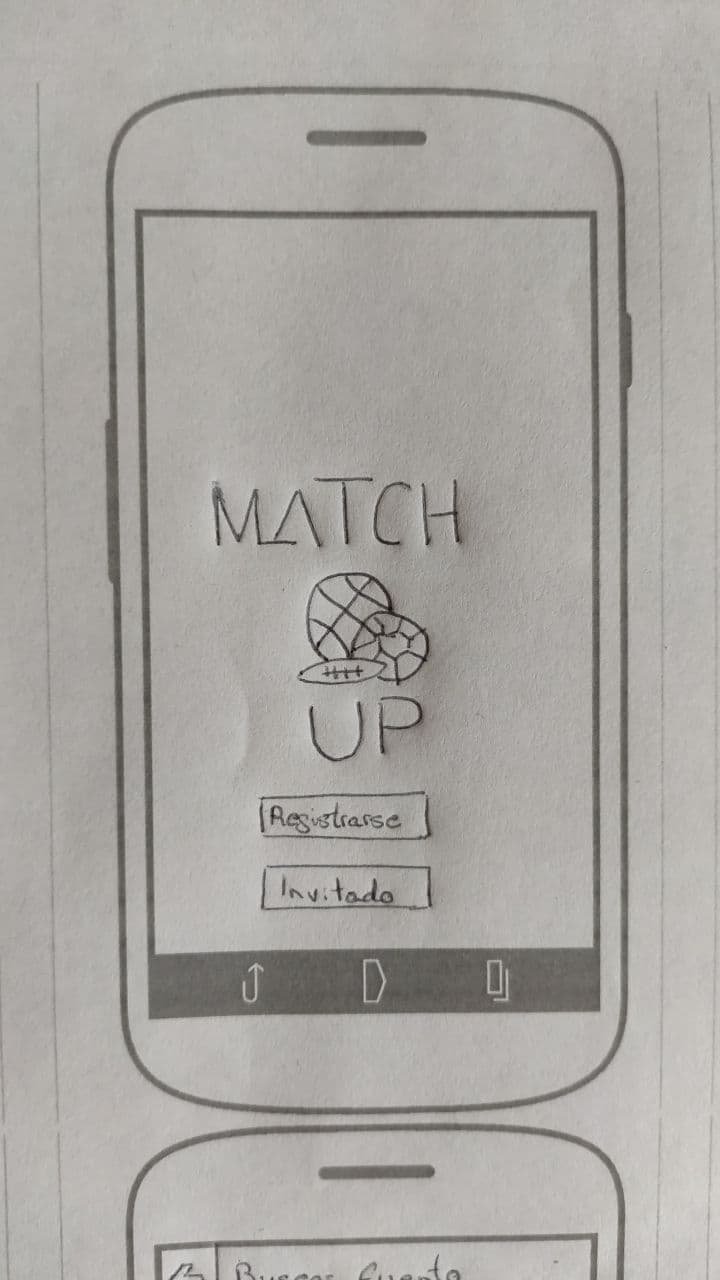 MATCH
UP
Registrarse
Invitado
Buscar Evento